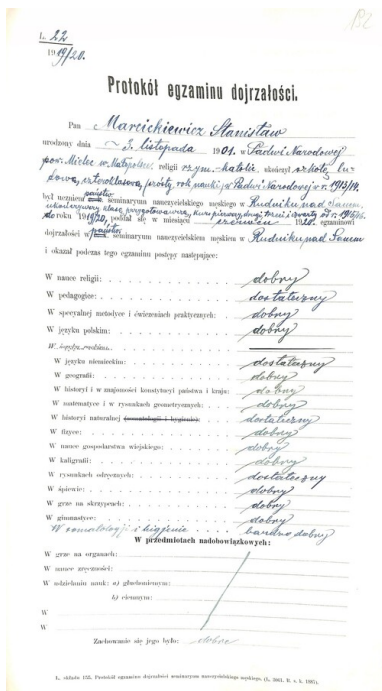 L. 22
1919/20.
Protokół egzaminu dojrzałości.
Pan Marcickiewicz Stanisław
urodzony dnia 3. listopada 1901. w Padwi Narodowej
pow. Mielec w Małopolsce religii rzym.-katolic ukończył szkołę lu-
dową, czteroklasową, (próby, rok nauki) w Padwi Narodowej w r. 1913/14.
był uczniem państw. seminaryum nauczycielskiego męskiego w Rudniku nad Sanem,
ukończywszy klasę przygotowawczą, kurs pierwszy, drugi, trzeci i czwarty od r. 1915/16.
do roku 1919/20, poddał się w miesiącu czerwcu 1920. egzaminowi
dojrzałości w państw. seminaryum nauczycielskiem męskiem w Rudniku nad Sanem
i okazał podczas tego egzaminu postępy następujące:
W nauce religii: dobry
W pedagogice: dostateczny
W specyalnej metodyce i ćwiczeniach praktycznych: dobry
W języku polskim: dobry
W języku ruskim:
W języku niemieckim: dostateczny
W geografii: dobry
W historyi i w znajomości konstytucyi państwa i kraju: dobry
W matematyce i w rysunkach geometrycznych: dobry
W historyi naturalnej (somatologii i hygienie): dostateczny
W fizyce: dobry
W nauce gospodarstwa wiejskiego: dobry
W kaligrafii: dobry
W rysunkach odręcznych: dostateczny
W śpiewie: dobry
W grze na skrzypcach: dobry
W gimnastyce: dobry
W somatologji i higjenie bardzo dobry
W przedmiotach nadobowiązkowych:
W grze na organach:
W nauce zręczności:
W udzielaniu nauk: a) głuchoniemym:
b) ciemnym:
W
W
Zachowanie się jego było: dobre
L. składu 155. Protokół egzaminu dojrzałości seminaryum nauczycielskiego męskiego.